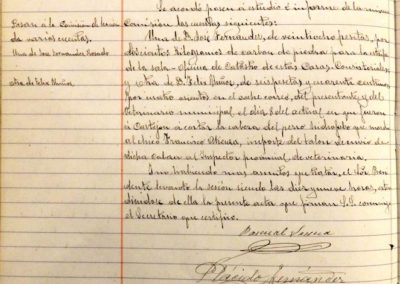 Se acordó pasen a estudio é informe de la misma
Comisión las cuentas siguientes:
Pasar a la Comisión de
de varias cuentas.
Una de D. José Fernández, de veintiocho pesetas, por
Una de José Fernández
doscientos kilogramos de carbón de piedra para la estufa
de la sala-oficina de Catastro de estas Casas Consistoriales;
otra de Felix Muñoz.
y otra de D. Felix Muñoz, de seis pesetas y cuarenta céntimos,
por cuatro asientos en el coche correo, del presente y del
Veterinario municipal, el día 8 del actual en que fueron
á Castejón á cortar la cabeza del perro hidrófobo que mordió
al chico Francisco importe del talón de envío de
dicha cabeza al Inspector provincial de veterinaria.
Y no habiendo más asuntos que tratar, el Sr. Presi-
dente levantó la sesión siendo las diez y nueve horas,
de ella la presente acta que firman S.S. conmigo
el Secretario que certifico.
Pascual
Plácido Fernández